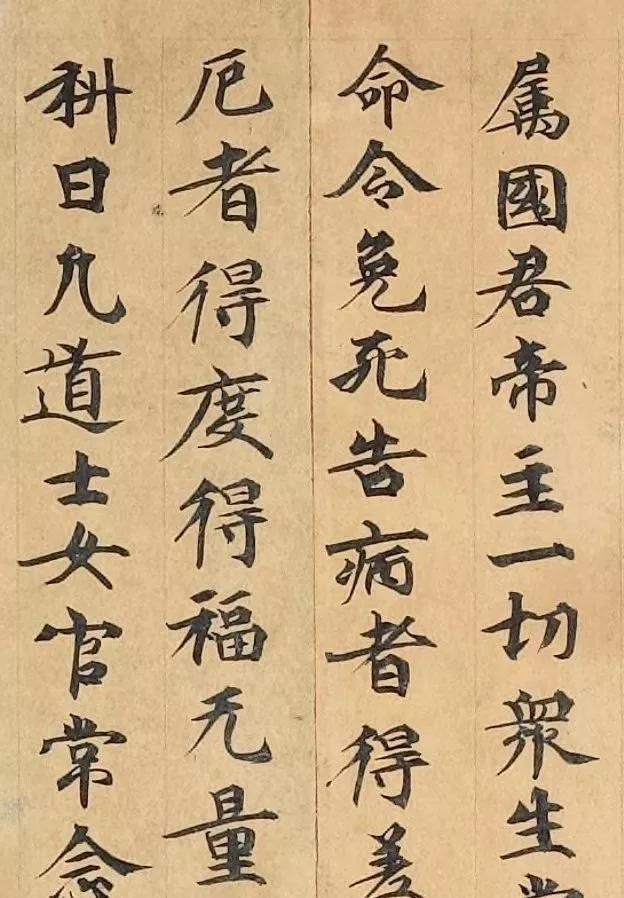 属國君帝主一切衆生
命令免死告病者得差
厄者得度得福无量
科曰凡道士女官常念